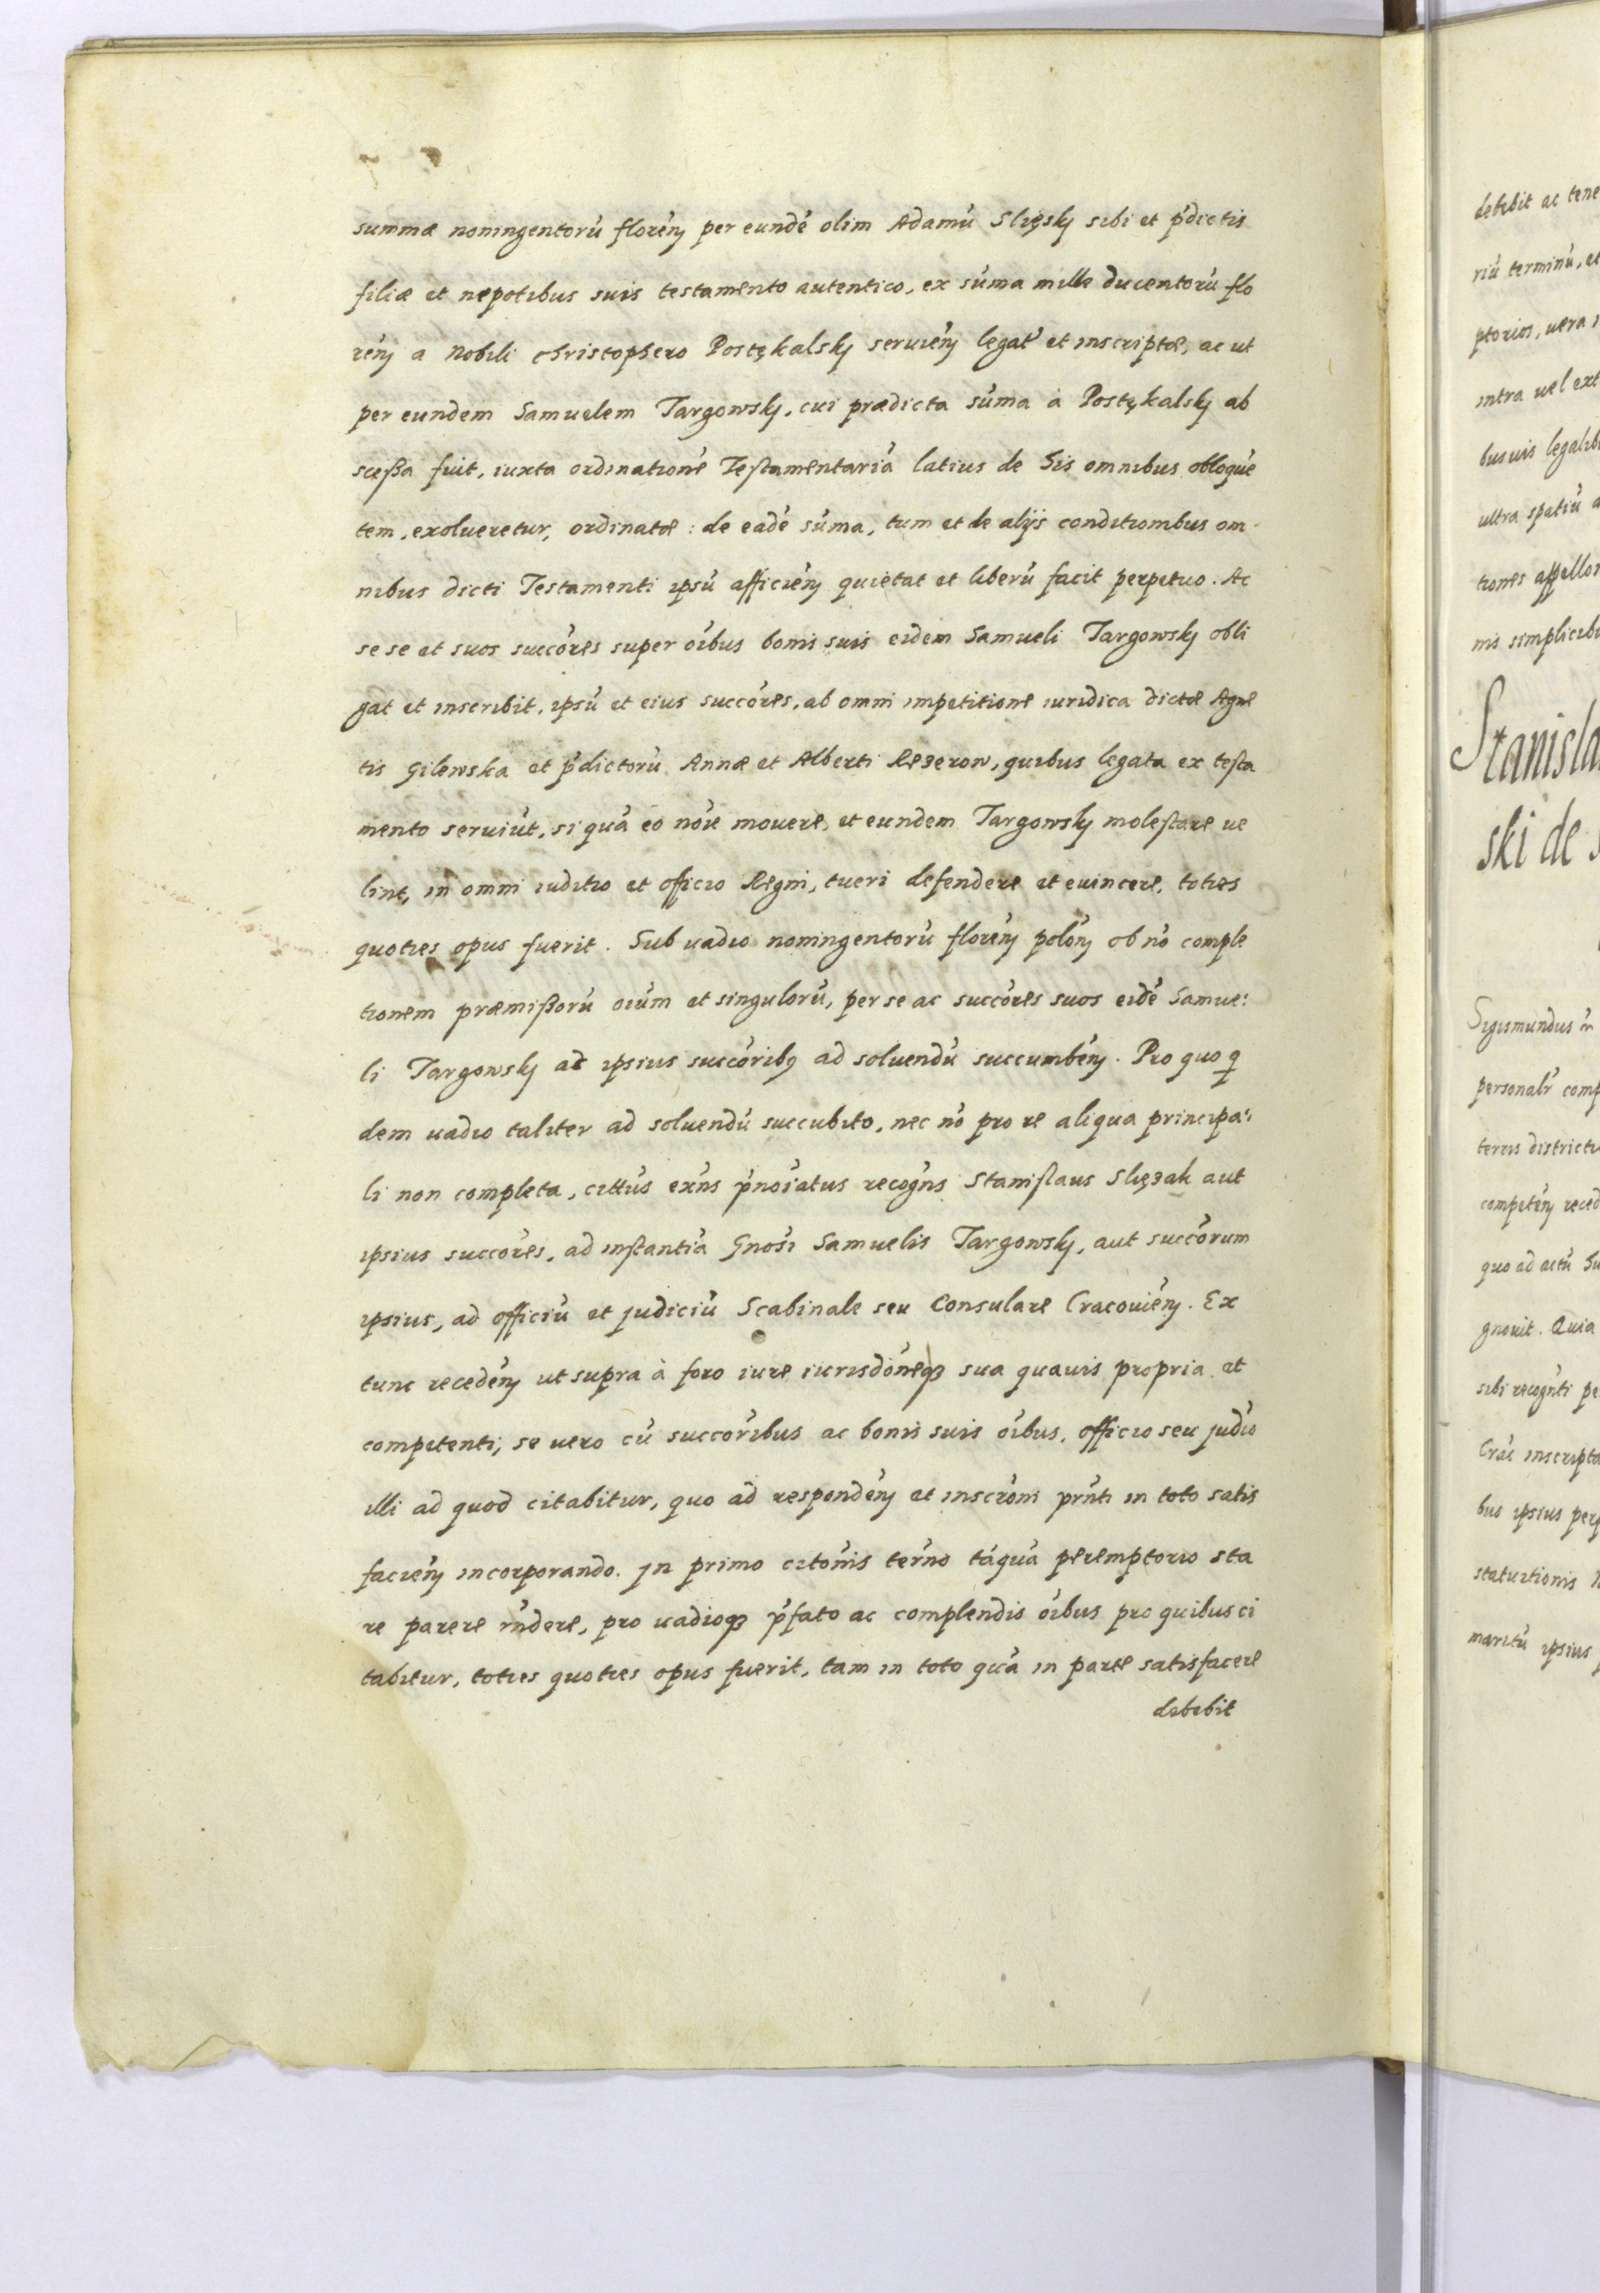 summæ noningentorú floréń per eundé olim Adamú Slięsky sibi et ṕdictis
filiæ et nepotibus suis testamento autentico, ex súma mille ducentorú flo
réń a Nobili Christophero Postękalsky seruiéń legat́ et inscriptæ, ac ut
per eundem Samuelem Targowsky, cui prædicta súma à Postękalsky ab
scessa fuit, iuxta ordinationé Testamentariá latius de his omnibus obloqué
tem, exolueretur, ordinatæ: de eadé súma, tum et de alÿs conditionibus om-
nibus dicti Testamenti ipsú afficiéń quietat et liberú facit perpetuo. Ac
se se et suos succóres super óibus bonis suis eidem Samueli Targowsky obli
gat et inscribit, ipsú et eius succóres, ab omni impetitione iuridica dictæ Agne
tis Gilewska et ṕdictorú Annæ et Alberti Rezerow, quibus legata ex testa
mento seruiút, si quá eo nóie mouere, et eundem Targowsky molestare ue
lint, in omni iuditio et officio Regni, tueri defendere et euincere, toties
quoties opus fuerit. Sub uadio noningentorú floréń polóń ob nó comple
tionem præmissorú oíum et singulorú, per se ac succóres suos eidé Samue:
li Targowsky ac ipsius succóribq ad soluendú succumbéń. Pro quo q
dem uadio taliter ad soluendú succubito, nec nó pro re aliqua principa:
li non completa, citt́us exńs ṕnóiatus recogńs Stanislaus Slęzak aut
ipsius succóres, ad instantiá Gnósi Samuelis Targowsky, aut succórum
ipsius, ad officiú et judiciú Scabinale seu Consulare Cracouiéń. Ex
tunc recedéń ut supra à foro iure iurisdóneq3 sua quauis propria et
competenti, se uero cú succóribus ac bonis suis óibus, officio seu judio
illi ad quod citabitur, quo ad respondéń et inscróni prńti in toto satis
faciéń incorporando. Jn primo citónis terńo táquá peremptorio sta
re parere rńdere, pro uadioq3 ṕfato ac complendis óibus pro quibus ci
tabitur, toties quoties opus fuerit, tam in toto quá in parte satisfacere
debebit
debebit ac tene
riú terminú, et
ptorios, uera
intra uel ext
busuis legalib
ultra spatiú a
tiones appellon
nis simplicibu
Stanisla
ski de
Sigismundus
personalr comp
terris districtu
competéń reced
quo ad actú hu
gnouit. Quia
sibi recogńti pe
Crác inscripta
bus ipsius perp
statuitionis
maritú ipsius